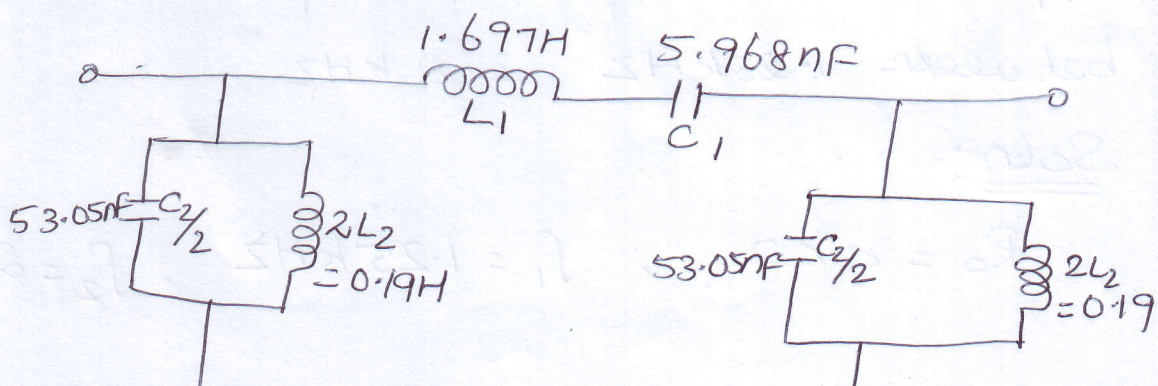 1.697H
5.968nF
L1
C1
53.05nF
C2/2
2L2
=0.19H
53.05nF
C2/2
2L2
=0.19